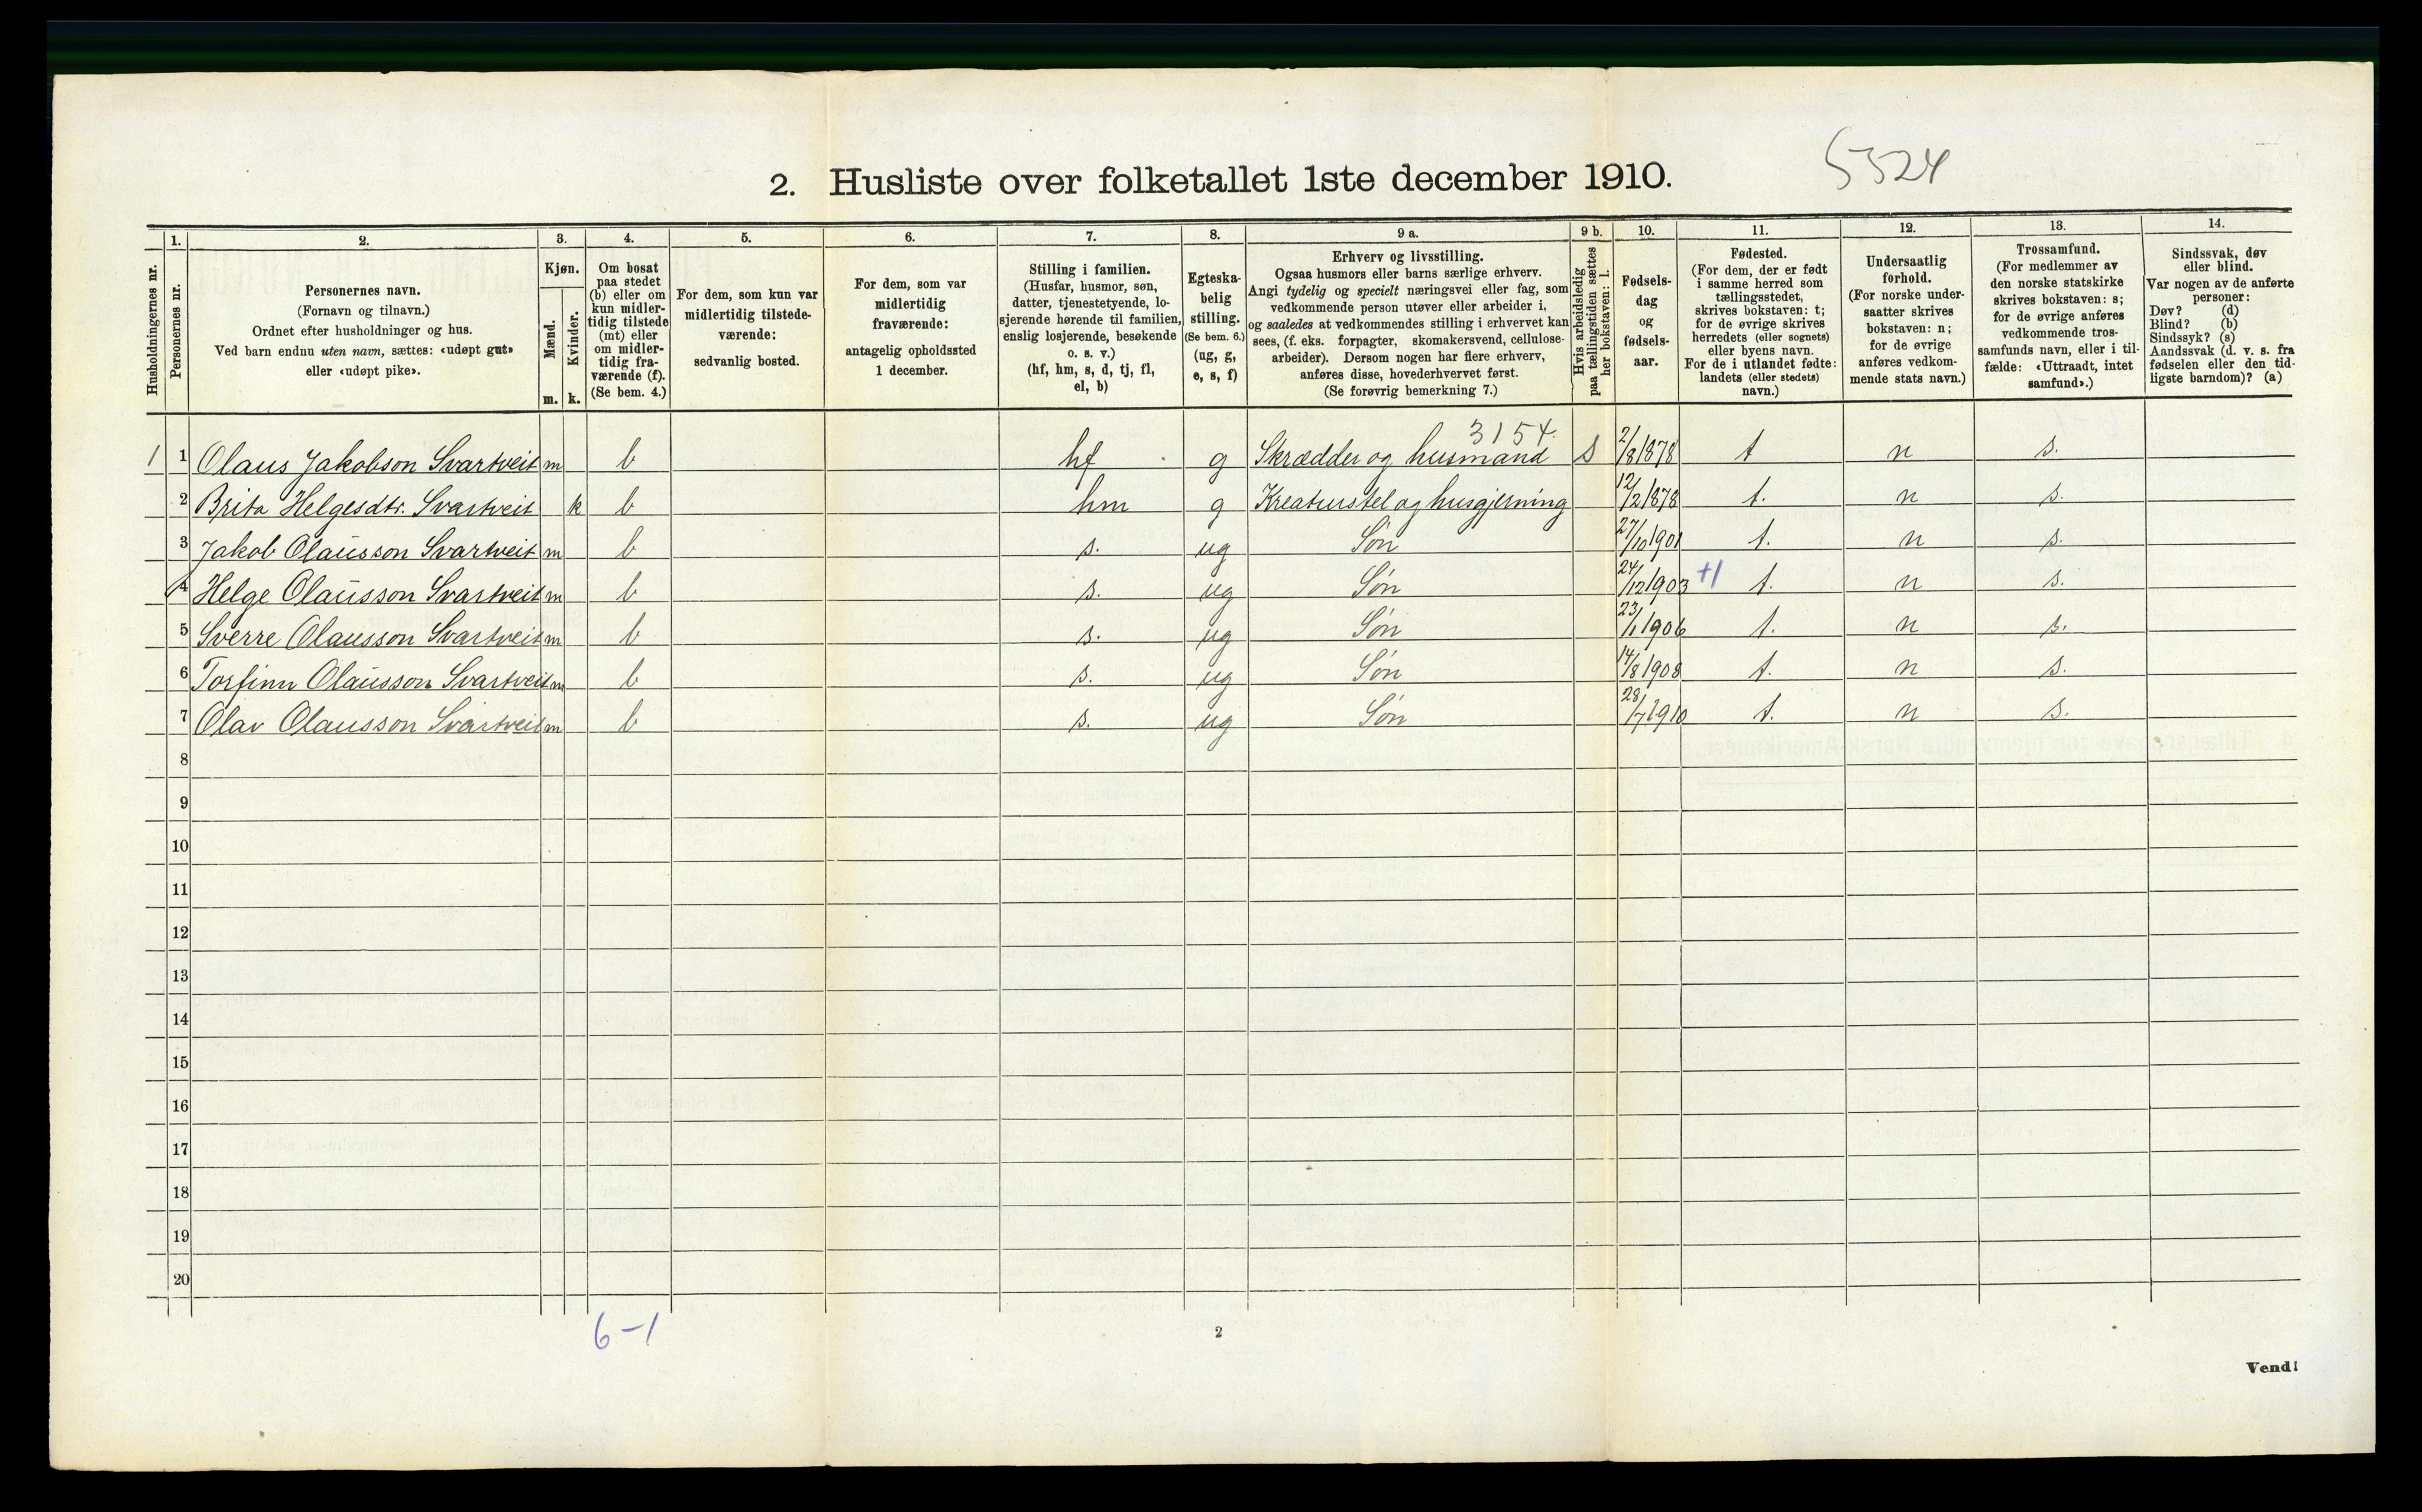 2. Husliste over folketallet 1ste december 1910.
5524
1. 2. 3. 4. 5. 6. 7. 8. 9 a. 9 b. 10. 11. 12. 13. 14.
Husholdningernes nr.
Personernes nr.
Personernes navn.
(Fornavn og tilnavn.)
Ordnet efter husholdninger og hus.
Ved barn endnu uten navn, sættes: «udøpt gut»
eller «udøpt pike».
Kjøn.
Mænd.
Kvinder.
m. k.
Om bosat
paa stedet
(b) eller om
kun midler-
tidig tilstede
(mt) eller
om midler-
tidig fra-
værende (f).
(Se bem. 4.)
For dem, som kun var
midlertidig tilstede-
værende:
sedvanlig bosted.
For dem, som var
midlertidig
fraværende:
antagelig opholdssted
1 december.
Stilling i familien.
(Husfar, husmor, søn,
datter, tjenestetyende, lo-
sjerende hørende til familien,
enslig losjerende, besøkende
o. s. v.)
(hf, hm, s, d, tj, fl,
el, b)
Egteska-
belig
stilling.
(Se bem. 6.)
(ug, g,
e, s, f)
Erhverv og livsstilling.
Ogsaa husmors eller barns særlige erhverv.
Angi tydelig og specielt næringsvei eller fag, som
vedkommende person utøver eller arbeider i,
og saaledes at vedkommendes stilling i erhvervet kan
sees, (f. eks. forpagter, skomakersvend, cellulose-
arbeider). Dersom nogen har flere erhverv,
anføres disse, hovederhvervet først.
(Se forøvrig bemerkning 7.)
Hvis arbeidsledig
paa tællingstiden sættes
her bokstaven: l.
Fødsels-
dag
og
fødsels-
aar.
Fødested.
(For dem, der er født
i samme herred som
tællingsstedet,
skrives bokstaven: t;
for de øvrige skrives
herredets (eller sognets)
eller byens navn.
For de i utlandet fødte:
landets (eller stedets)
navn.)
Undersaatlig
forhold.
(For norske under-
saatter skrives
bokstaven: n;
for de øvrige
anføres vedkom-
mende stats navn.)
Trossamfund.
(For medlemmer av
den norske statskirke
skrives bokstaven: s;
for de øvrige anføres
vedkommende tros-
samfunds navn, eller i til-
fælde: «Uttraadt, intet
samfund».)
Sindssvak, døv
eller blind.
Var nogen av de anførte
personer:
Døv? (d)
Blind? (b)
Sindssyk? (s)
Aandssvak (d. v. s. fra
fødselen eller den tid-
ligste barndom)? (a)
3154
1 1 Olaus Jakobson Svartveit m b hf g Skrædder og husmand s 2/8 1878 t n s.
2 Brita Helgesdtr. Svartveit k b hm g Kreaturstel og husgjerning 12/2 1878 t. n s.
3 Jakob Olausson Svartveit m b s. ug Søn 27/10 1901 t. n s.
4 Helge Olausson Svartveit m b s. ug Søn 24/12 1903 +1 t. n s.
5 Sverre Olausson Svartveit m b s. ug Søn 23/1 1906 t. n s.
6 Torfinn Olausson Svartveit m b s. ug Søn 14/8 1908 t. n s.
7 Olav Olausson Svartveit m b s. ug Søn 28/7 1910 t. n s.
8
9
10
11
12
13
14
15
16
17
18
19
20
6-1
2
Vend!